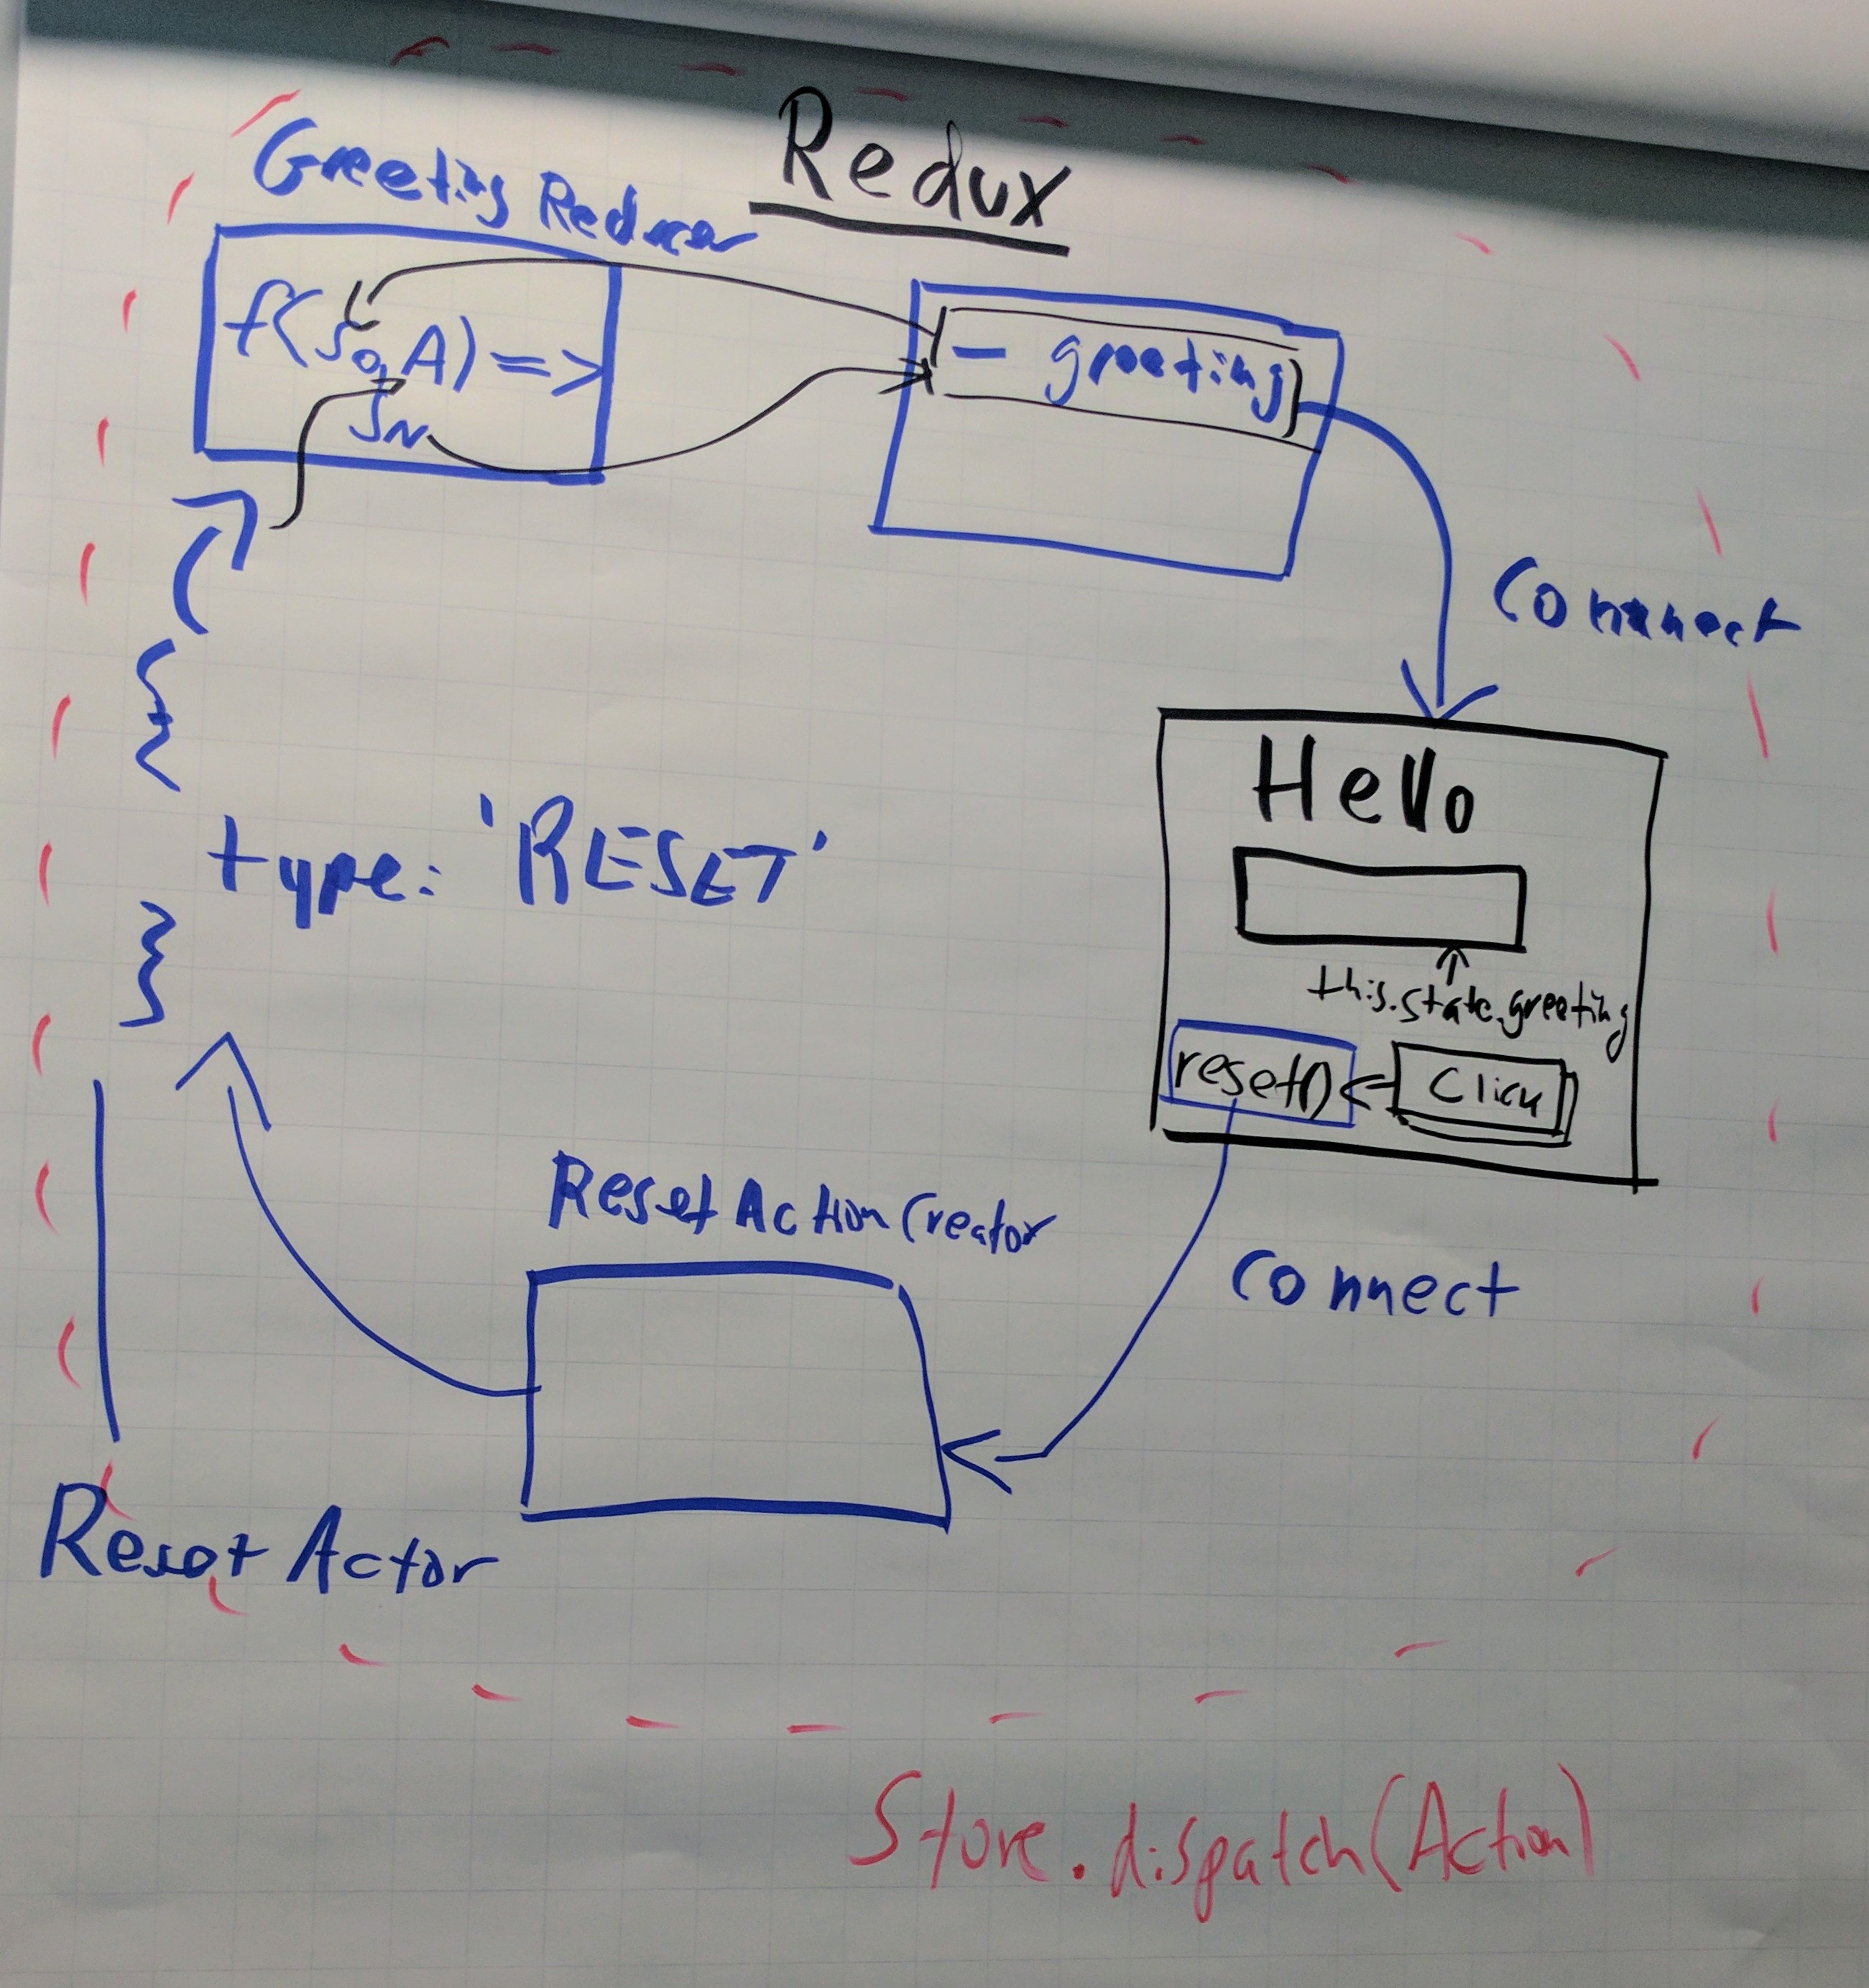 Redux
Greeting Reducer
f(So,A) =>
SN
- greeting
Connect
Hello
this.state.greeting
reset()
Click
{
type: 'RESET'
}
Reset Action Creator
Connect
Reset Actor
Store.dispatch(Action)